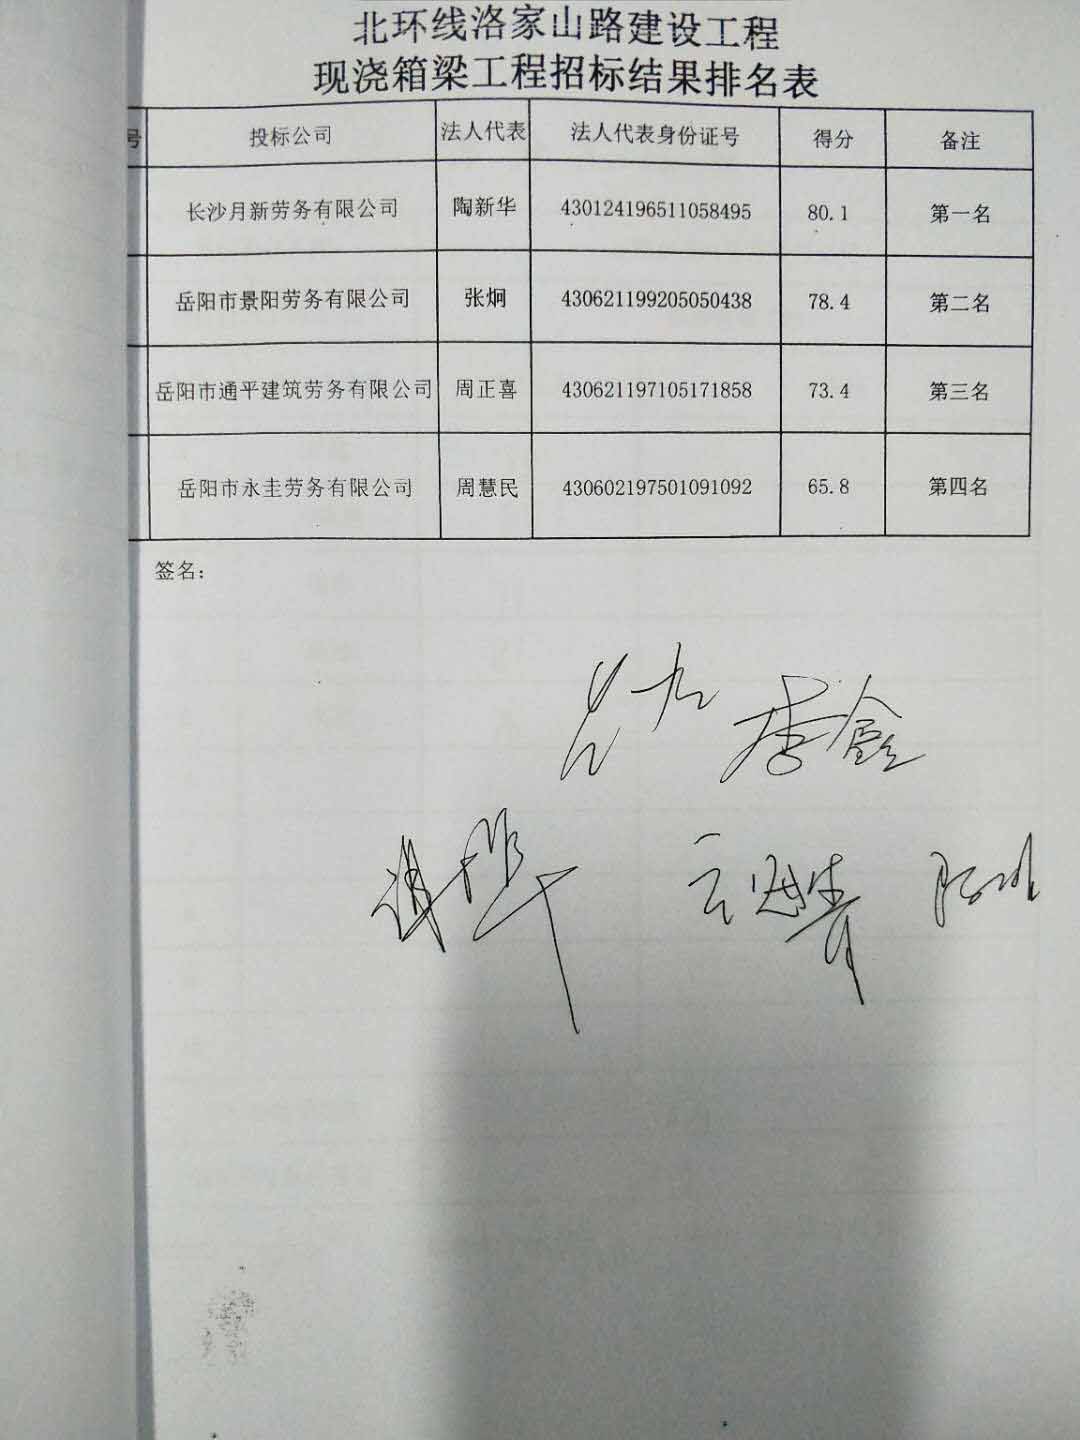 北环线洛家山路建设工程
现浇箱梁工程招标结果排名表
号 投标公司 法人代表 法人代表身份证号 得分 备注
长沙月新劳务有限公司 陶新华 430124196511058495 80.1 第一名
岳阳市景阳劳务有限公司 张炯 430621199205050438 78.4 第二名
岳阳市通平建筑劳务有限公司 周正喜 430621197105171858 73.4 第三名
岳阳市永圭劳务有限公司 周慧民 430602197501091092 65.8 第四名
签名：
李鑫